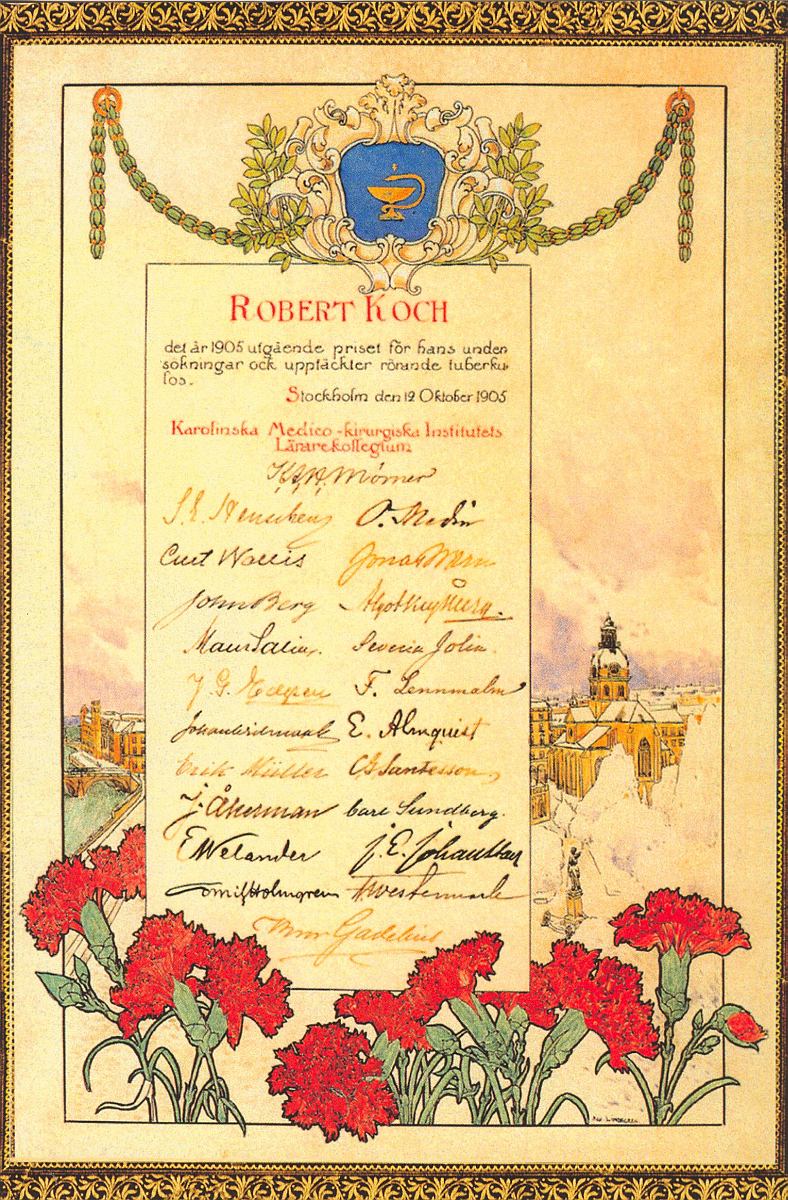 ROBERT KOCH
det år 1905 utgående priset för hans under
sökningar ock upptäckter rörande tuberku-
los.
Stockholm den 12 Oktober 1905
Karolinska Medico-kirurgiska Institutets
Lärarekollegium
K.A.H. Mörner
S. E. Henschen O. Medin
Curt Wallis Jonas
John Berg Algot Key
Severin Jolin.
J. G. Edgren F. Lennmalm
E. Almquist
Erik Müller C G Santesson
J. Åkerman Carl Sundberg.
E Welander J. E. Johansson
Emil Holmgren Westermark
Gadelius